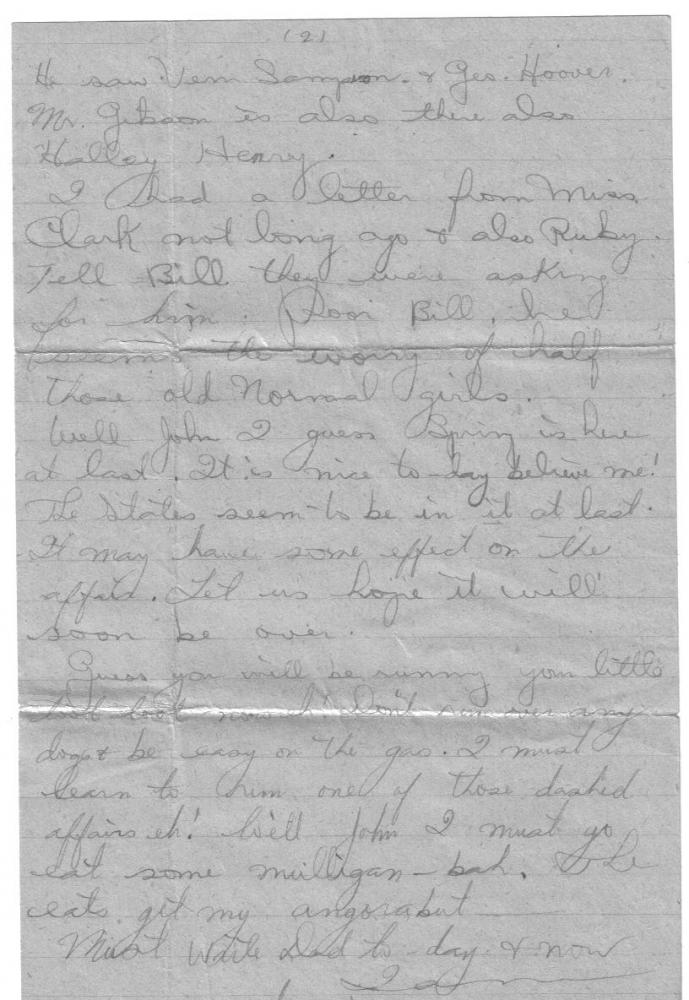 (2)
He saw Vern Sampson. & Geo. Hoover.
Mr. Gibson is also there also
Halley Henry.
I had a letter from Miss
Clark not long ago & also Ruby.
Tell Bill they were asking
for him. Poor Bill, he
seems the worry of half
those old Normal girls.
Well John I guess Spring is here
at last. It is nice to-day believe me!
The States seem to be in it at last.
It may have some effect on the
affair. Let us hope it will
soon be over.
Guess you will be running your little
now Don't run over any
dogs & be easy on the gas. I must
learn to run one of those dashed
affairs eh! Well John I must go
eat some mulligan - bah.
eats get my angora but
Must write Dad to-day & now